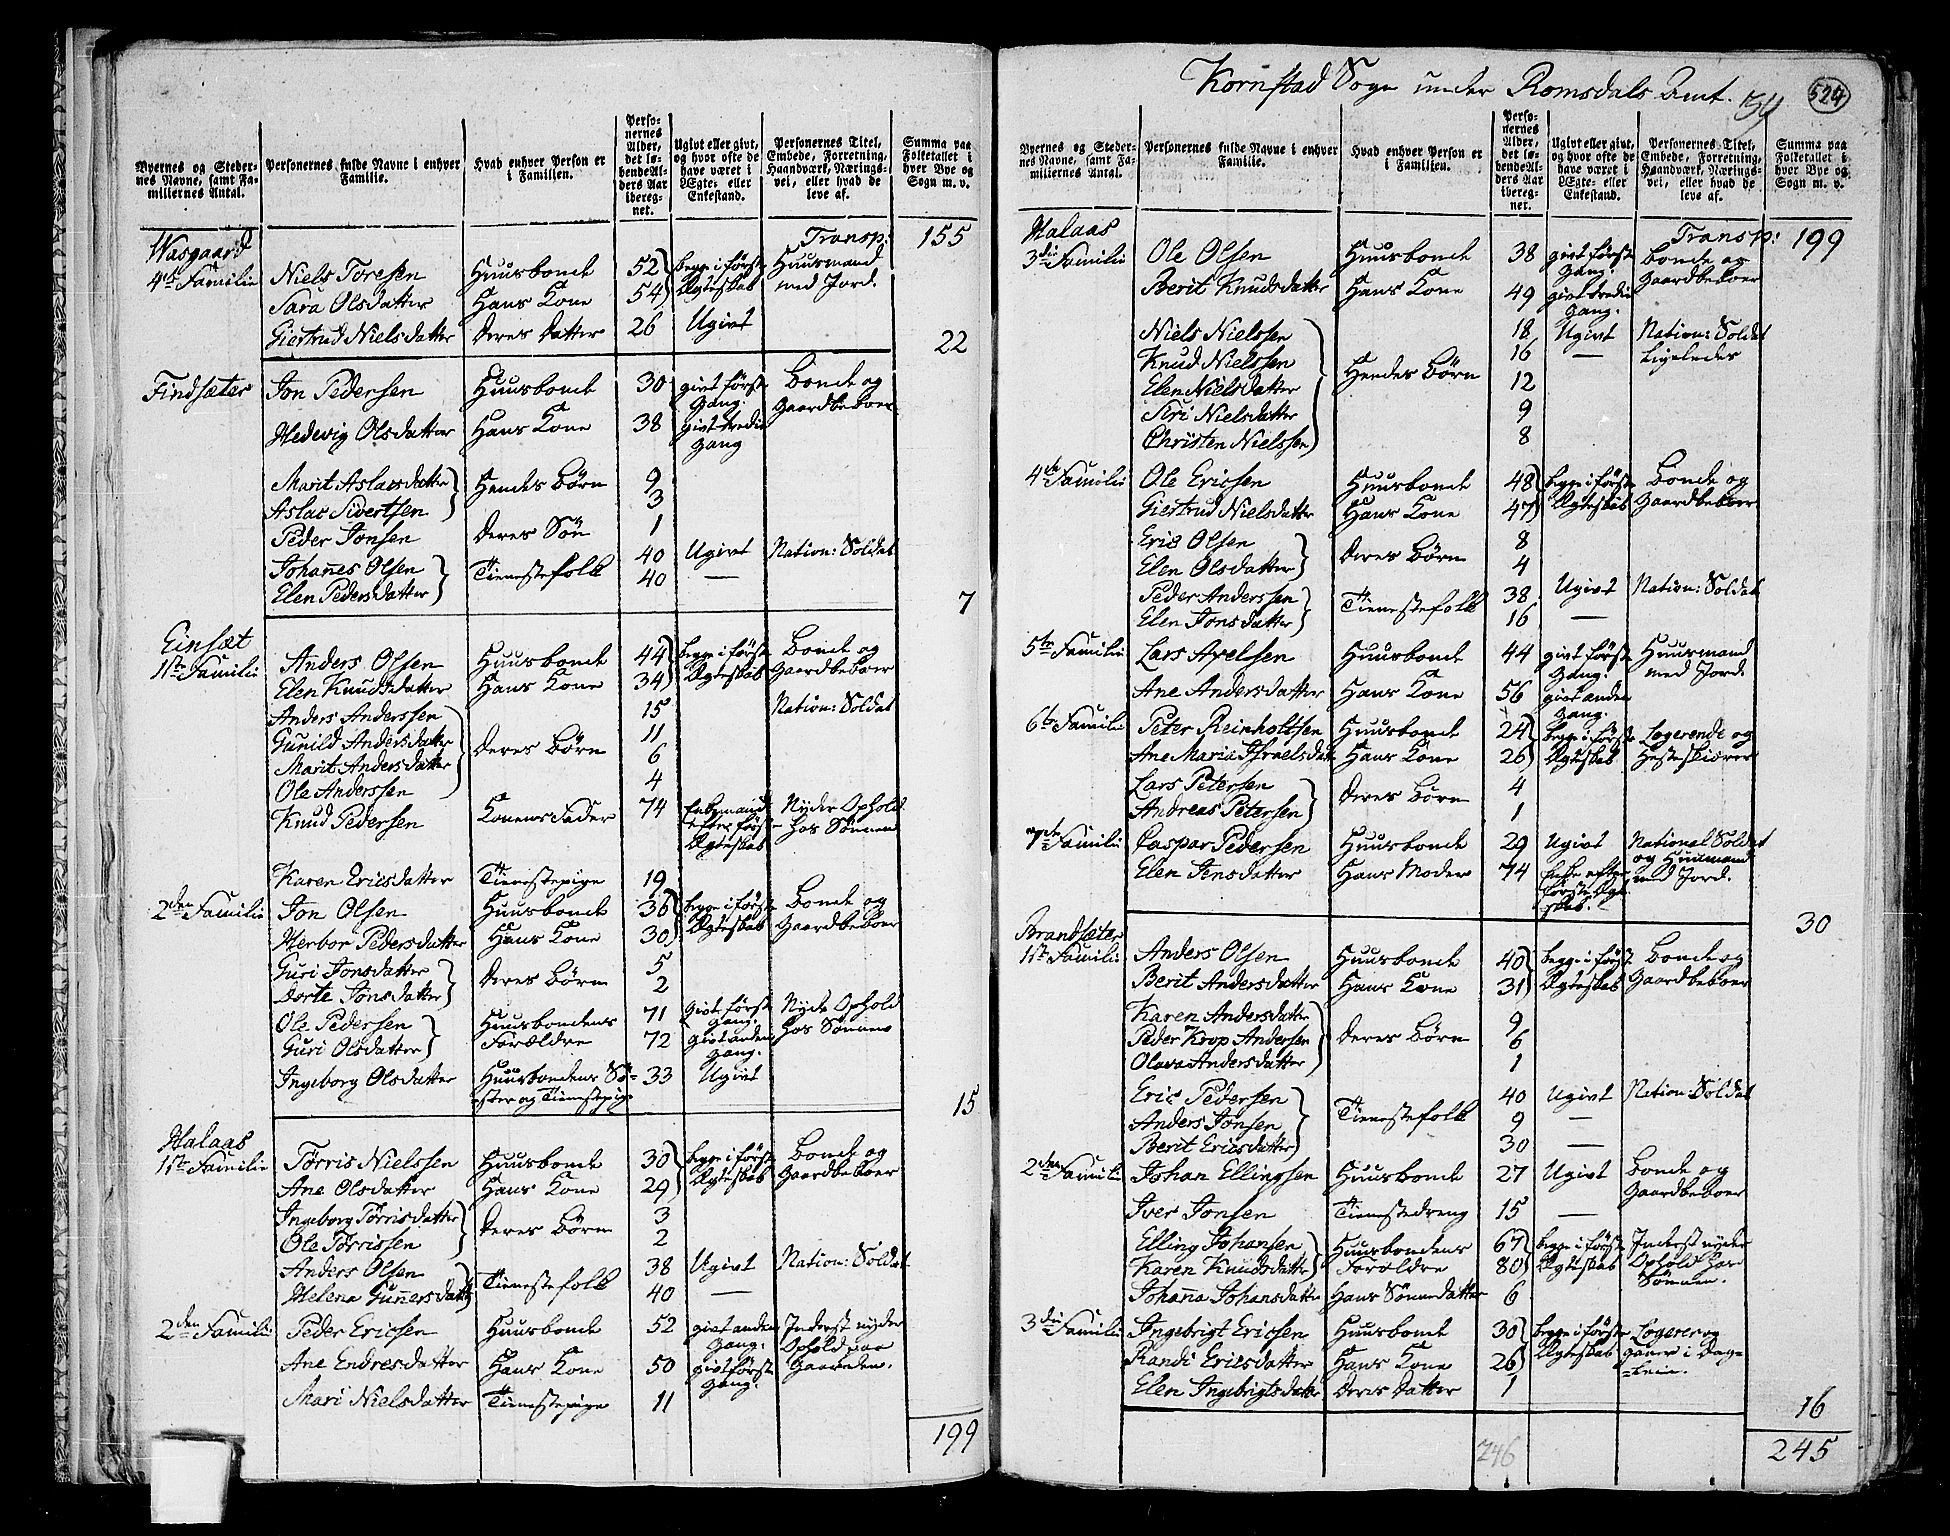 Kornstad Sogn under Romsdals Amt.
524
Byernes og Steder-
nes Navne, samt Fa-
miliernes Antal.
Personernes fulde Navne i enhver
Familie.
Hvad enhver Person er
i Familien.
Perso-
nernes
Alder,
det lø-
bende Al-
ders Aar
iberég-
net.
Ugivt eller givt,
og hvor ofte de
have været i
Ægte- eller
Enkestand.
Personernes Titel,
Embede, Forretning,
Haandværk, Nærings-
vei, eller hvad de
leve af.
Summa paa
Folketallet i
hver Bye og
Sogn m. v.
Transp: 155
Wasgaard
4de Familie Niels Toresen Huusbonde 52 begge i første Huusmand
Sara Olsdatter Hans Kone 54 Ægteskab med Jord.
Giertrud Nielsdatter Deres Datter 26 Ugivt
22
Findsæter Jon Pedersen Huusbonde 30 givt første Bonde og
Gang. Gaardbeboer
Hedevig Olsdatter Hans Kone 38 givt tredie
Gang
Marit Aslacsdatter Hendes Børn 9
Aslac Sivertsen 3
Peder Jonsen Deres Søn 1
Johañes Olsen Tienestefolk 40 Ugivt Nation: Soldat
Elen Pedersdatter 40 —
7
Einsæt
1ste Familie Anders Olsen Huusbonde 44 begge i første Bonde og
Elen Knudsdatter Hans Kone 34 Ægteskab Gaardbeboer
Anders Anderssen Deres Børn 15 Nation: Soldat
Gunild Andersdatter 11
Marit Andersdatter 6
Ole Anderssen 4
Knud Pedersen Konens Fader 74 Enkemand Nyder Ophold
efter først hos Sønnen
Ægteskab
Karen Ericsdatter Tienestepige 19
2den Familie Jon Olsen Huusbonde 36 begge i første Bonde og
Herbor Pedersdatter Hans Kone 30 Ægteskab Gaardbeboer
Guri Jonsdatter Deres Børn 5
Dorte Jonsdatter 2
Ole Pedersen Huusbondens 71 givt første Nyde Ophold
Gang. hos Sønnen
Guri Olsdatter Forældre 72 givt anden
Gang.
Ingeborg Olsdatter Huusbondens Sø- 33 Ugivt
ster og Tienestepige
15
Malaas
1ste Familie Tørris Nielssen Huusbonde 30 begge i første Bonde og
Ane Olsdatter Hans Kone 29 Ægteskab Gaardbeboer
Ingeborg Tørrisdatter Deres Børn 3
Ole Tørrissen 2
Anders Olsen Tienestefolk 38 Ugivt Nation: Soldat
Helena Guñersdatter 40 —
2den Familie Peder Ericsen Huusbonde 52 givt anden Inderst nyder
Gang. Ophold paa
Ane Endresdatter Hans Kone 50 givt første Gaarden.
Gang.
Mari Nielsdatter Tienestepige 11
199
Byernes og Steder-
nes Navne, samt Fa-
miliernes Antal.
Personernes fulde Navne i enhver
Familie.
Hvad enhver Person er
i Familien.
Perso-
nernes
Alder,
det lø-
bende Al-
ders Aar
iberég-
net.
Ugivt eller givt,
og hvor ofte de
have været i
Ægte- eller
Enkestand.
Personernes Titel,
Embede, Forretning,
Haandværk, Nærings-
vei, eller hvad de
leve af.
Summa paa
Folketallet i
hver Bye og
Sogn m. v.
Transp: 199
Malaas
3die Familie Ole Olsen Huusbonde 38 givt første Bonde og
Gang. Gaardbeboer
Berit Knudsdatter Hans Kone 49 givt tredie
Gang.
Niels Nielssen Hendes Børn 18 Ugivt Nation: Soldat
Knud Nielssen 16 — Ligeledes
Elen Nielsdatter 12
Siri Nielsdatter 9
Christen Nielssen 8
4de Familie Ole Ericsen Huusbonde 48 begge i første Bonde og
Giertrud Nielsdatter Hans Kone 47 Ægteskab Gaardbeboer
Eric Olsen Deres Børn 8
Elen Olsdatter 4
Peder Anderssen Tienestefolk 38 Ugivt Nation: Soldat
Elen Jonsdatter 16 —
5te Familie Lars Axelsen Huusbonde 44 givt første Huusmand
Gang. med Jord.
Ane Andersdatter Hans Kone 56 givt anden
Gang.
6te Familie Peter Reinholtsen Huusbonde 24 begge i første Logerende og
Ane Maria Israelsdatt Hans Kone 26 Ægteskab Hesteskiærer
Lars Petersen Deres Børn 4
Andreas Petersen 1
7de Familie Caspar Pedersen Huusbonde 29 Ugivt National Soldat
og Huusmand
Elen Jensdatter Hans Moder 74 Enke efter med Jord.
første Ægte-
skab.
30
Brandsæter
1ste Familie Anders Olsen Huusbonde 40 begge i først Bonde og
Berit Andersdatter Hans Kone 31 Ægteskab Gaardbeboer
Karen Andersdatter Deres Børn 9
Peder Koop Andersen 6
Olava Andersdatter 1
Eric Pedersen Tienestefolk 40 Ugivt Nation: Soldat
Anders Jonsen 9 —
Berit Ericsdatter 30 —
2den Familie Johan Ellingsen Huusbonde 27 Ugivt Bonde og
Gaardbeboer
Iver Jonsen Tienestedreng 15 —
Elling Johansen Huusbondens 67 begge i første Inderst nyder
Karen Knudsdatter Forældre 80 Ægteskab Ophold hos
Sønnen.
Johaña Johansdatter Hans Sønnedatter 6
3die Familie Ingebrigt Ericsen Huusbonde 30 begge i første Logerer og
Randi Ericsdatter Hans Kone 26 Ægteskab gaaer i Dag-
leie.
Elen Ingebrigtsdatter Deres Datter 1
16
246
245